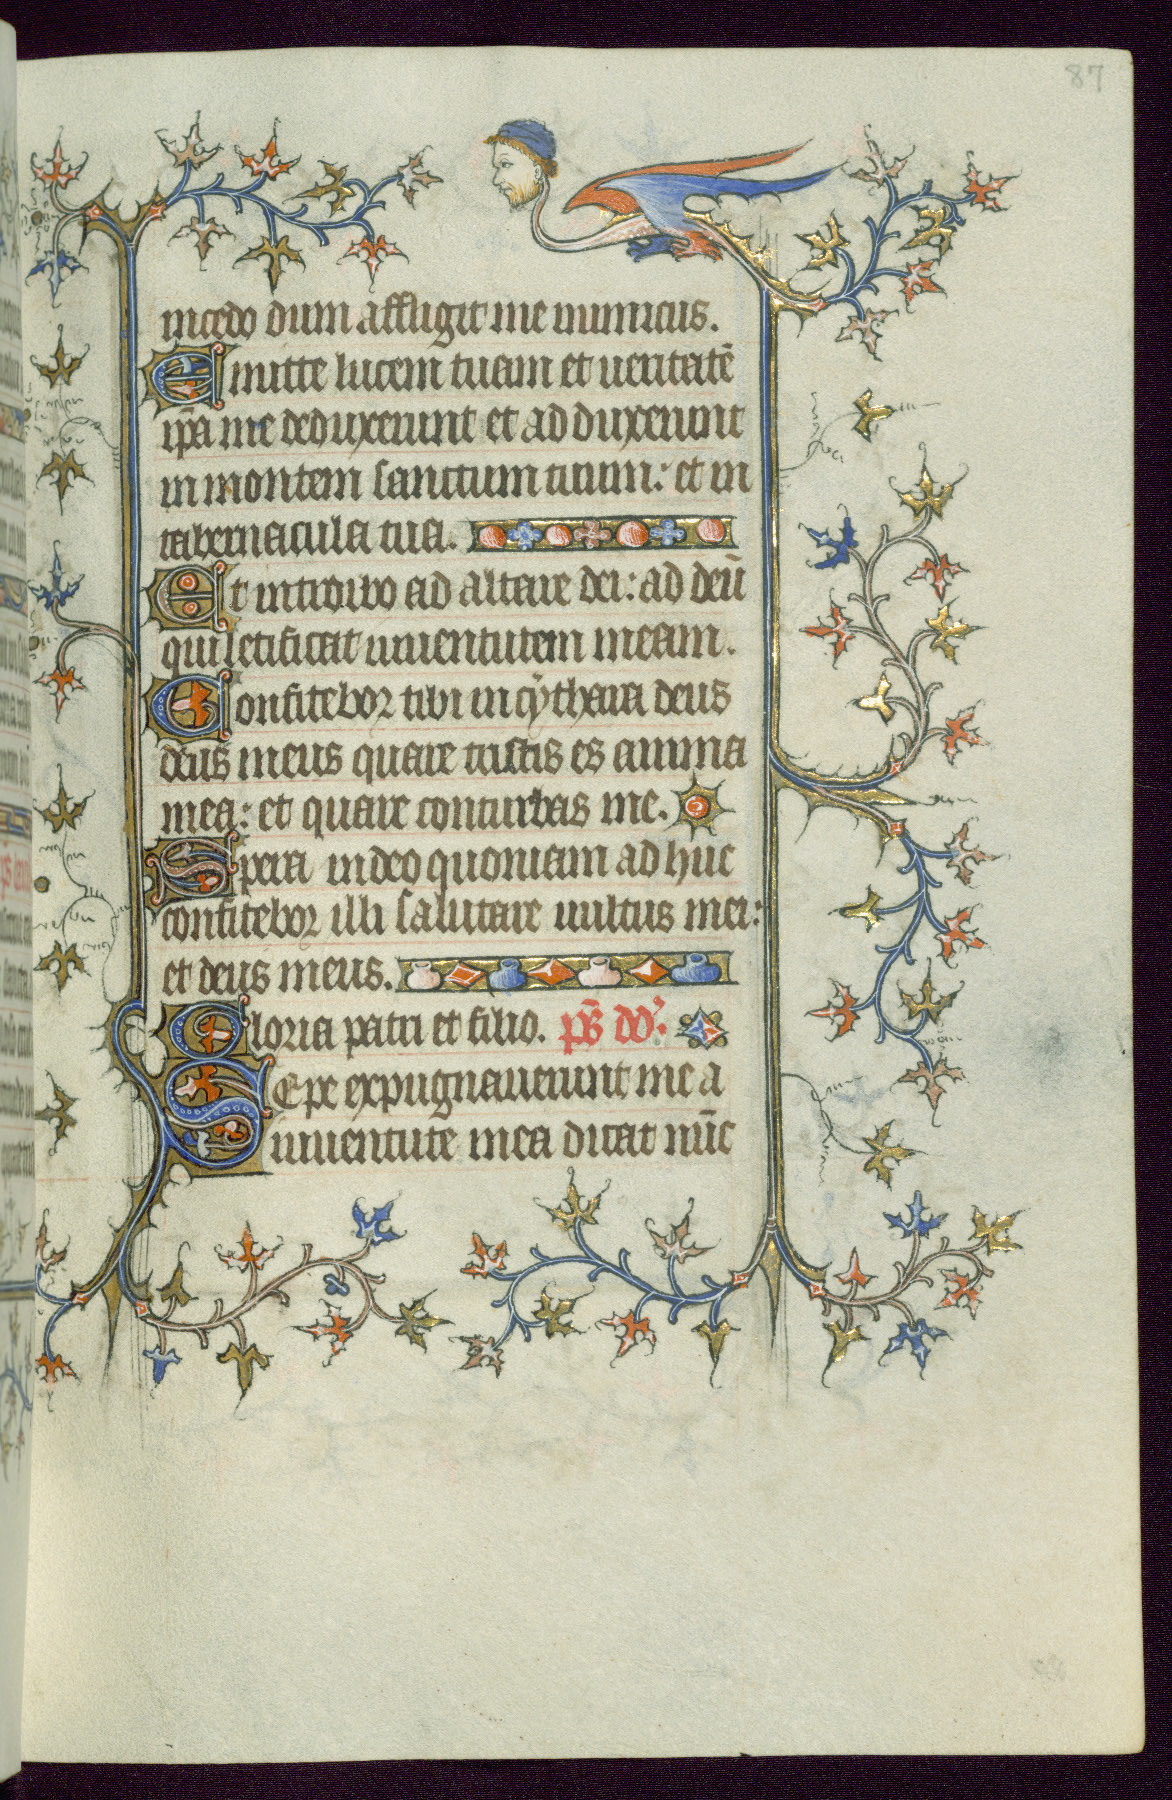 87
incedo dum affligit me inimicus.
Emitte lucem tuam et ueritatē
ip̄a me deduxerunt et ad duxerunt
in montem sanctum tuum: et in
tabernacula tua.
Et introibo ad altare dei: ad deū
qui letificat iuuentutem meam.
Confitebor tibi in cythara deus
deus meus quare tristis es anima
mea: et quare conturbas me.
Spera in deo quoniam ad huc
confitebor illi salutare uultus mei:
et deus meus.
Gloria patri et filio. ps̄ dd'.
Sepe expugnauerunt me a
iuuentute mea dicat nūc